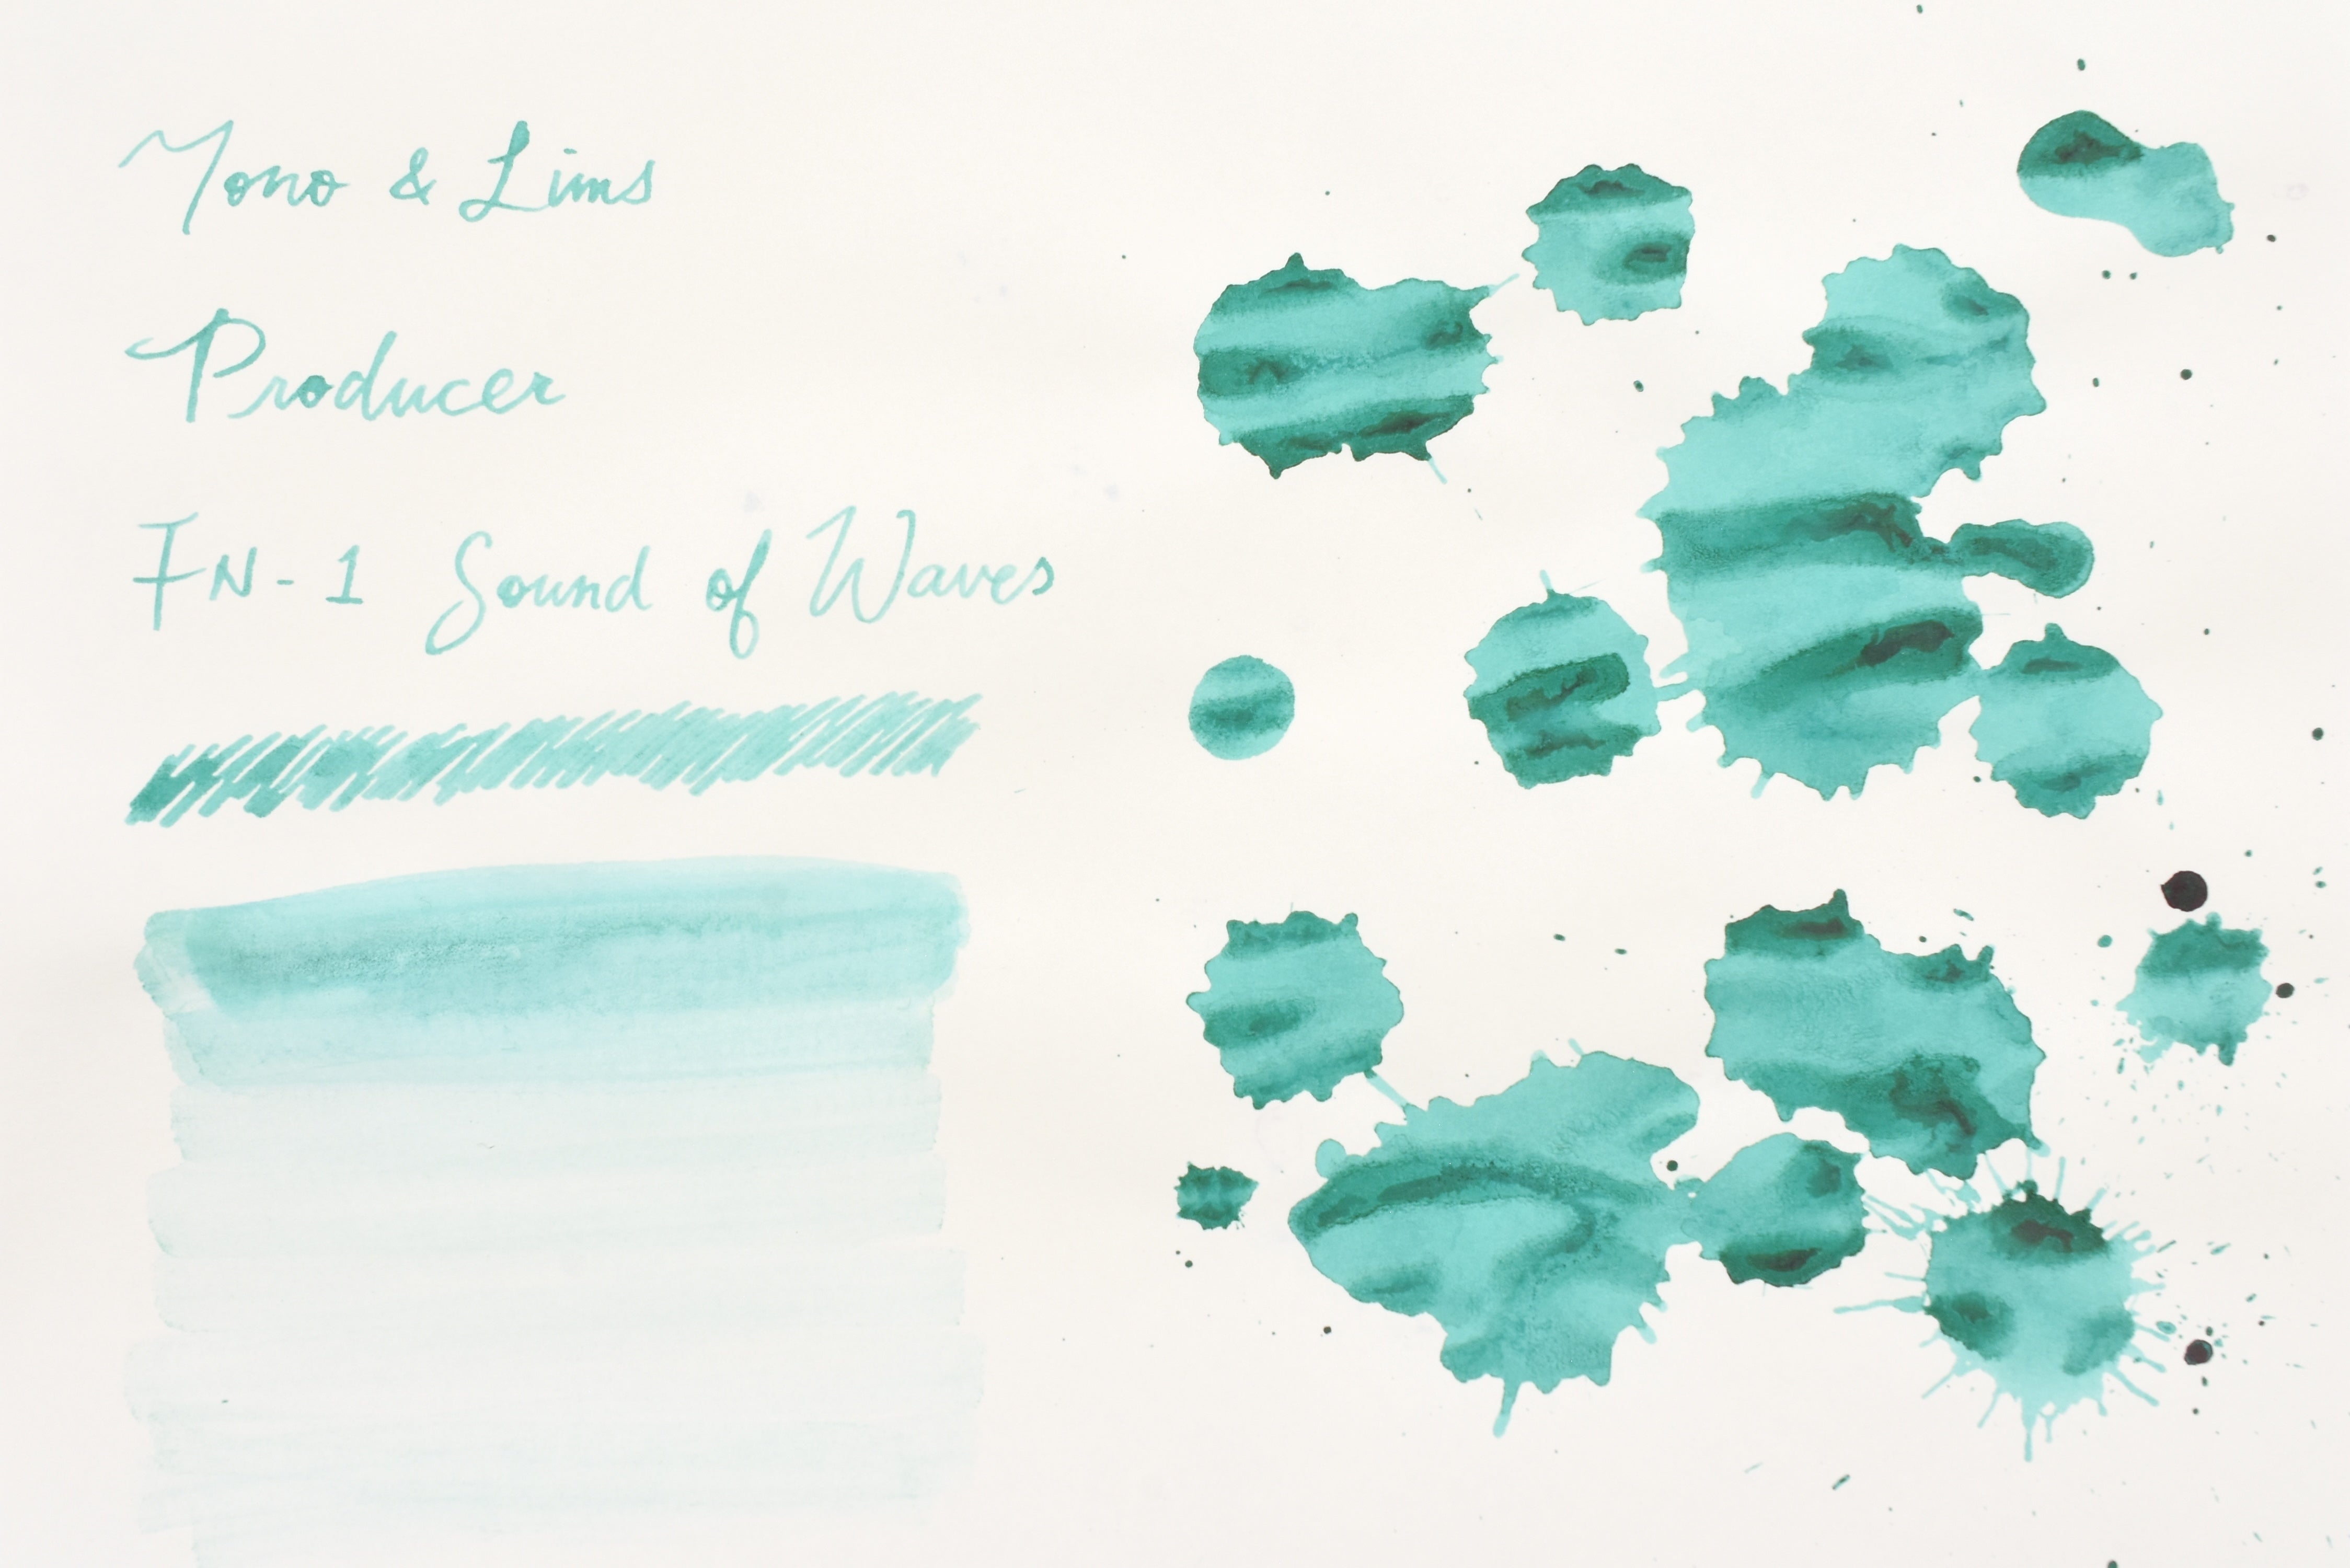 Mono & Lims
Producer
FN-1 Sound of Waves